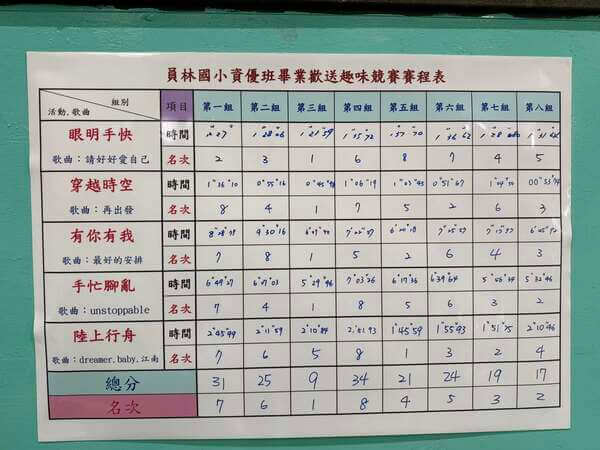 員林國小資優班畢業歡送趣味競賽賽程表
組別 項目 第一組 第二組 第三組 第四組 第五組 第六組 第七組 第八組
活動.歌曲
眼明手快 時間
歌曲：請好好愛自己 名次 2 3 1 6 8 7 4 5
穿越時空 時間 1"36'10 0"55'16 0"45'98 1"06'19 1"03'43 0"51'67
歌曲：再出發 名次 8 4 1 7 5 2 6 3
有你有我 時間 9"30'16
歌曲：最好的安排 名次 7 8 1 5 2 6 4 3
手忙腳亂 時間 6"49'27 6"07'03 5"29'96 7"03'26 6"17'36 6"39'64 5"32'46
歌曲：unstoppable 名次 7 4 1 8 5 6 3 2
陸上行舟 時間 2"45'99 2"11'59 2"10'84 2"51'93 1"45'59 1"55'93 1"51'75 2"10'46
歌曲：dreamer.baby.江南 名次 7 6 5 8 1 3 2 4
總分 31 25 9 34 21 24 19 17
名次 7 6 1 8 4 5 3 2